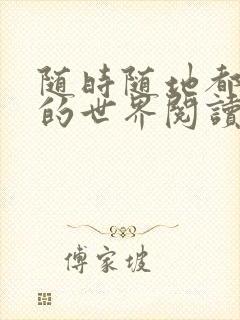 随時随地都
的世界閱讀
傅家坡